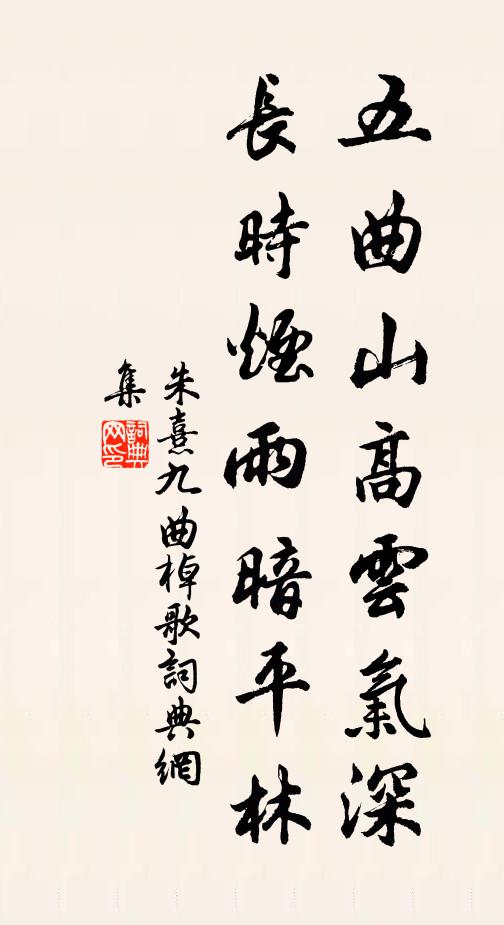 五曲山高雲氣深
長時煙雨暗平林
朱熹九曲棹歌詞典網
集
詞典
网印